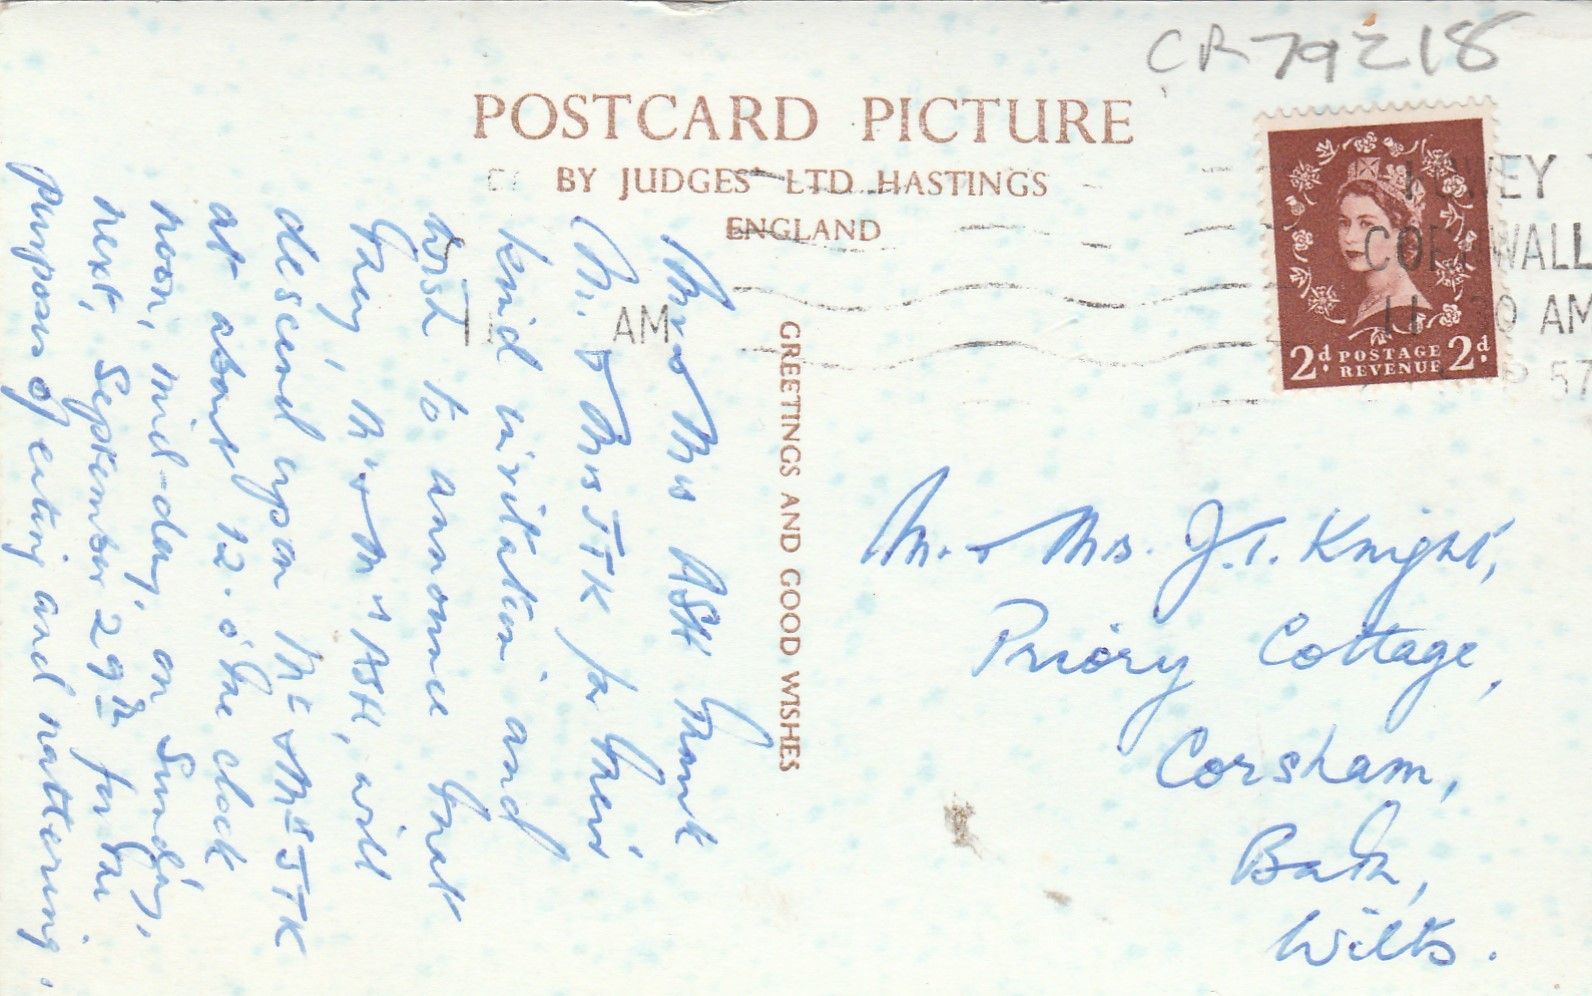 CR79218
POSTCARD PICTURE
BY JUDGES LTD HASTINGS
ENGLAND
FOWEY
CORNWALL
11 30 AM
57
2d. POSTAGE REVENUE 2d.
AM
GREETINGS AND GOOD WISHES
Mr & Mrs ASH thank
Mr. & Mrs JTK for their
kind invitation and
wish to announce that
they, Mr & Mrs ASH, will
descend upon Mr & Mrs JTK
at about 12. o'the clock
noon, mid-day, on Sunday,
next, September 29th for the
purposes of eating and nattering.
Mr. & Mrs. J.T. Knight,
Priory Cottage,
Corsham,
Bath,
Wilts.